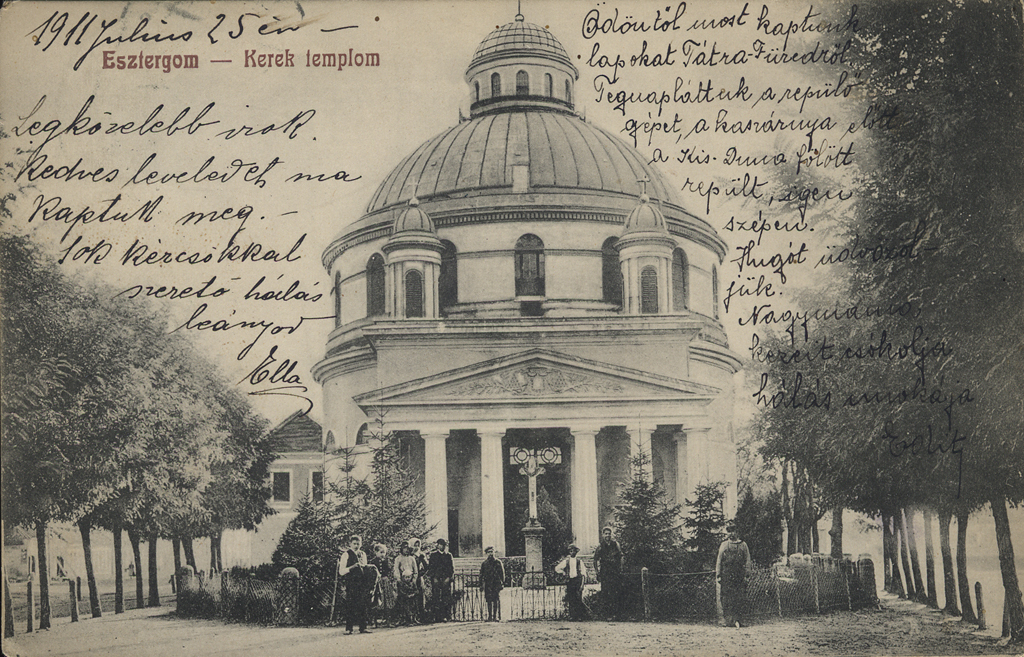 1911 Julius 25 én —
Esztergom — Kerek templom
Legközelebb irok.
Kedves leveledet ma
Kaptuk meg. —
Sok kézcsókkal
szerető hálás
leányod
Ella
Ödöntől most kaptunk
lapokat Tátra-Füredről,
Tegnap láttuk a repülő
gépet, a kaszárnya előtt
a Kis-Duna fölött
repült, igen
szépen.
Hugót üdvözöl-
jük.
Nagymama
kezeit csókolja
hálás unokája
Edit